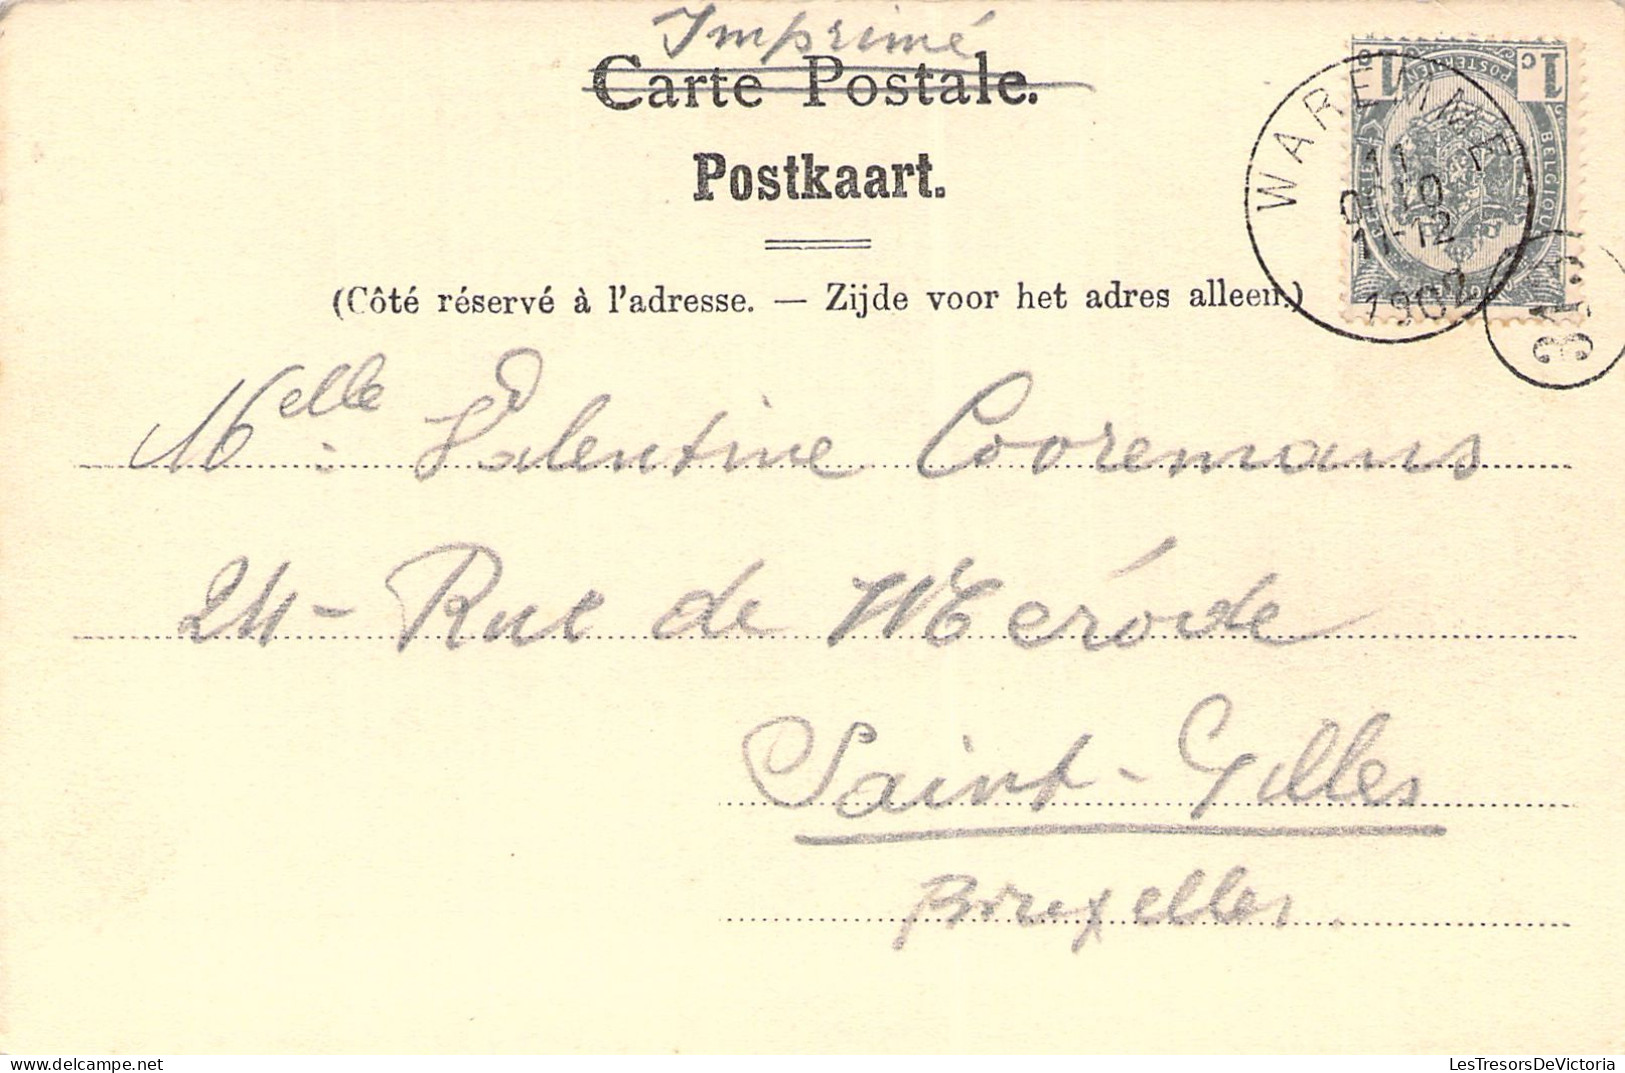 Imprimé
Carte Postale.
Postkaart.
(Côté réservé à l'adresse. — Zijde voor het adres alleen.)
1c 1c
POSTERIJEN
BELGIQUE
WAREMME
11
10
11-12
1902
Melle: Valentine Cooremans
24- Rue de Mérode
Saint-Gilles
Bruxelles.
LesTresorsDeVictoria